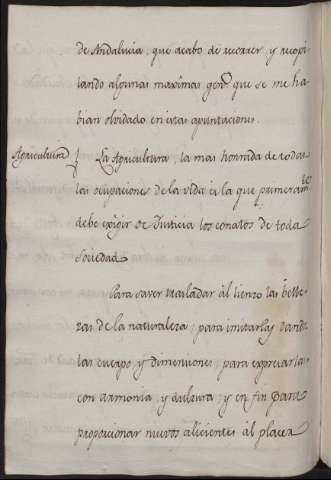 de Andalucia, que acabo de recorrer y recopi
lando algunas maximas gen.s que se me ha
bian olvidado en estas apuntaciones.
Agricultura
La Agricultura, la mas honrada de todas
las ocupaciones de la vida es la que primeram.te
debe exigir de Justicia los conatos de toda
Sociedad.
Para saver trasladar àl lienzo las belle
zas de la naturaleza; para imitarlas dando
las cuerpo, y dimensiones; para expresarlas
con armonia, y dulzura; y en fin para
proporcionar nuevos alicientes àl placer